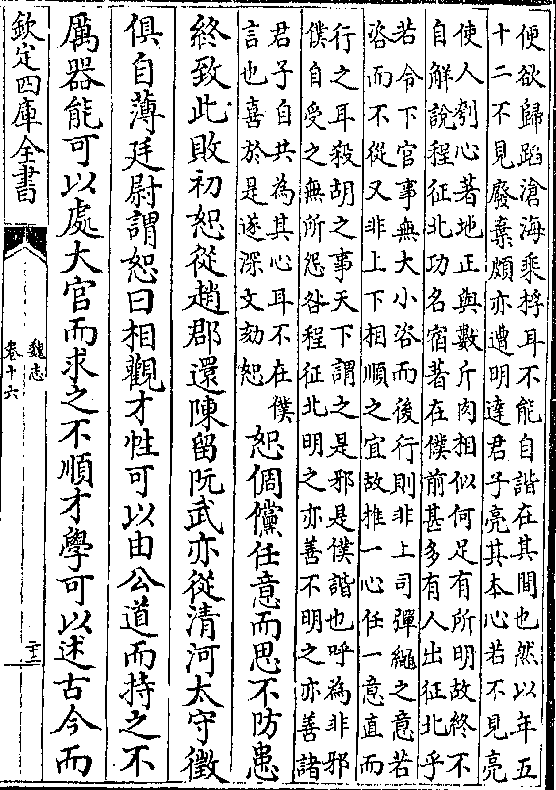 便欲歸蹈滄海乘桴耳不能自諧在其間也然以年五
十二不見廢棄頗亦遭明達君子亮其本心若不見亮
使人刳心著地正與數斤肉相似何足有所明故終不
自解說程征北功名宿著在僕前甚多有人出征北乎
若令下官事無大小咨而後行則非上司彈繩之意若
咨而不從又非上下相順之宜故推一心任一意直而
行之耳殺胡之事天下謂之是邪是僕諧也呼為非邪
僕自受之無所怨咎程征北明之亦善不明之亦善諸
君子自共為其心耳不在僕
言也喜於是遂深文劾恕
恕倜儻任意而思不防患
終致此敗初恕從趙郡還陳留阮武亦從清河太守徵
俱自薄廷尉謂恕曰相觀才性可以由公道而持之不
厲器能可以處大官而求之不順才學可以述古今而
欽定四庫全書
魏志
卷十六
二十二